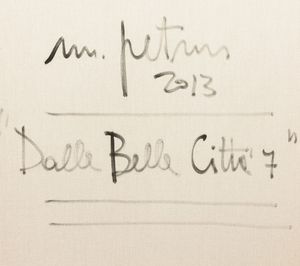 m. petrus
2013
"Dalle Belle Città 7"